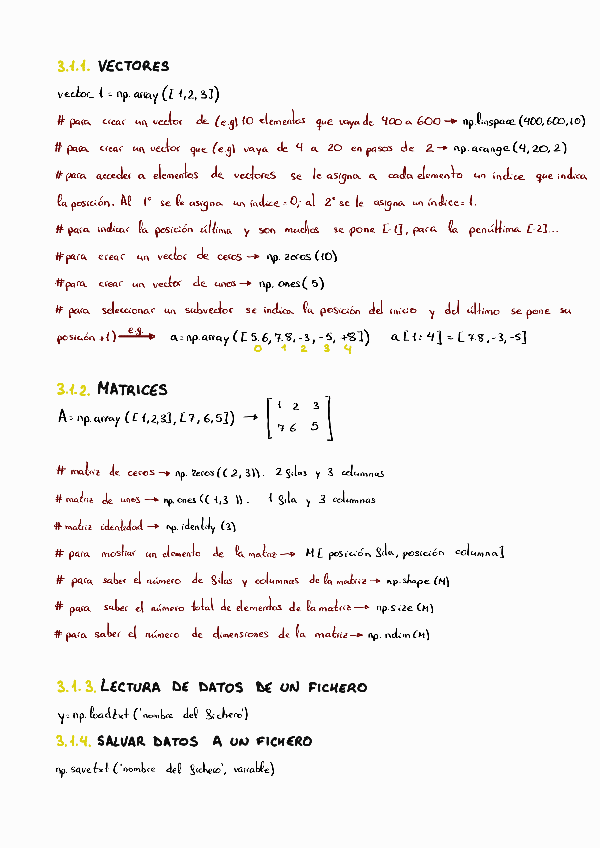 3.1.1. VECTORES
vector_1 = np.array([1,2,3])
# para crear un vector de (e.g) 10 elementos que vaya de 400 a 600 → np.linspace(400,600,10)
# para crear un vector que (e.g) vaya de 4 a 20 en pasos de 2 → np.arange(4,20,2)
# para acceder a elementos de vectores se le asigna a cada elemento un índice que indica
la posición. Al 1º se le asigna un índice=0; al 2º se le asigna un índice=1.
# para indicar la posición última y son muchos se pone [-1], para la penúltima [-2]...
# para crear un vector de ceros → np.zeros(10)
# para crear un vector de unos → np.ones(5)
# para seleccionar un subvector se indica la posición del inicio y del último se pone su
posición +1) e.g. → a=np.array([5.6, 7.8, -3, -5, +8]) a[1:4] = [7.8, -3, -5]
0 1 2 3 4
3.1.2. MATRICES
A = np.array([1,2,3], [7,6,5]) → [1 2 3
7 6 5]
# matriz de ceros → np.zeros((2,3)). 2 filas y 3 columnas
# matriz de unos → np.ones((1,3)). 1 fila y 3 columnas
# matriz identidad → np.identity(3)
# para mostrar un elemento de la matriz → M[posición fila, posición columna]
# para saber el número de filas y columnas de la matriz → np.shape(M)
# para saber el número total de elementos de la matriz → np.size(M)
# para saber el número de dimensiones de la matriz → np.ndim(M)
3.1.3. LECTURA DE DATOS DE UN FICHERO
y = np.loadtxt('nombre del fichero')
3.1.4. SALVAR DATOS A UN FICHERO
np.savetxt('nombre del fichero', variable)